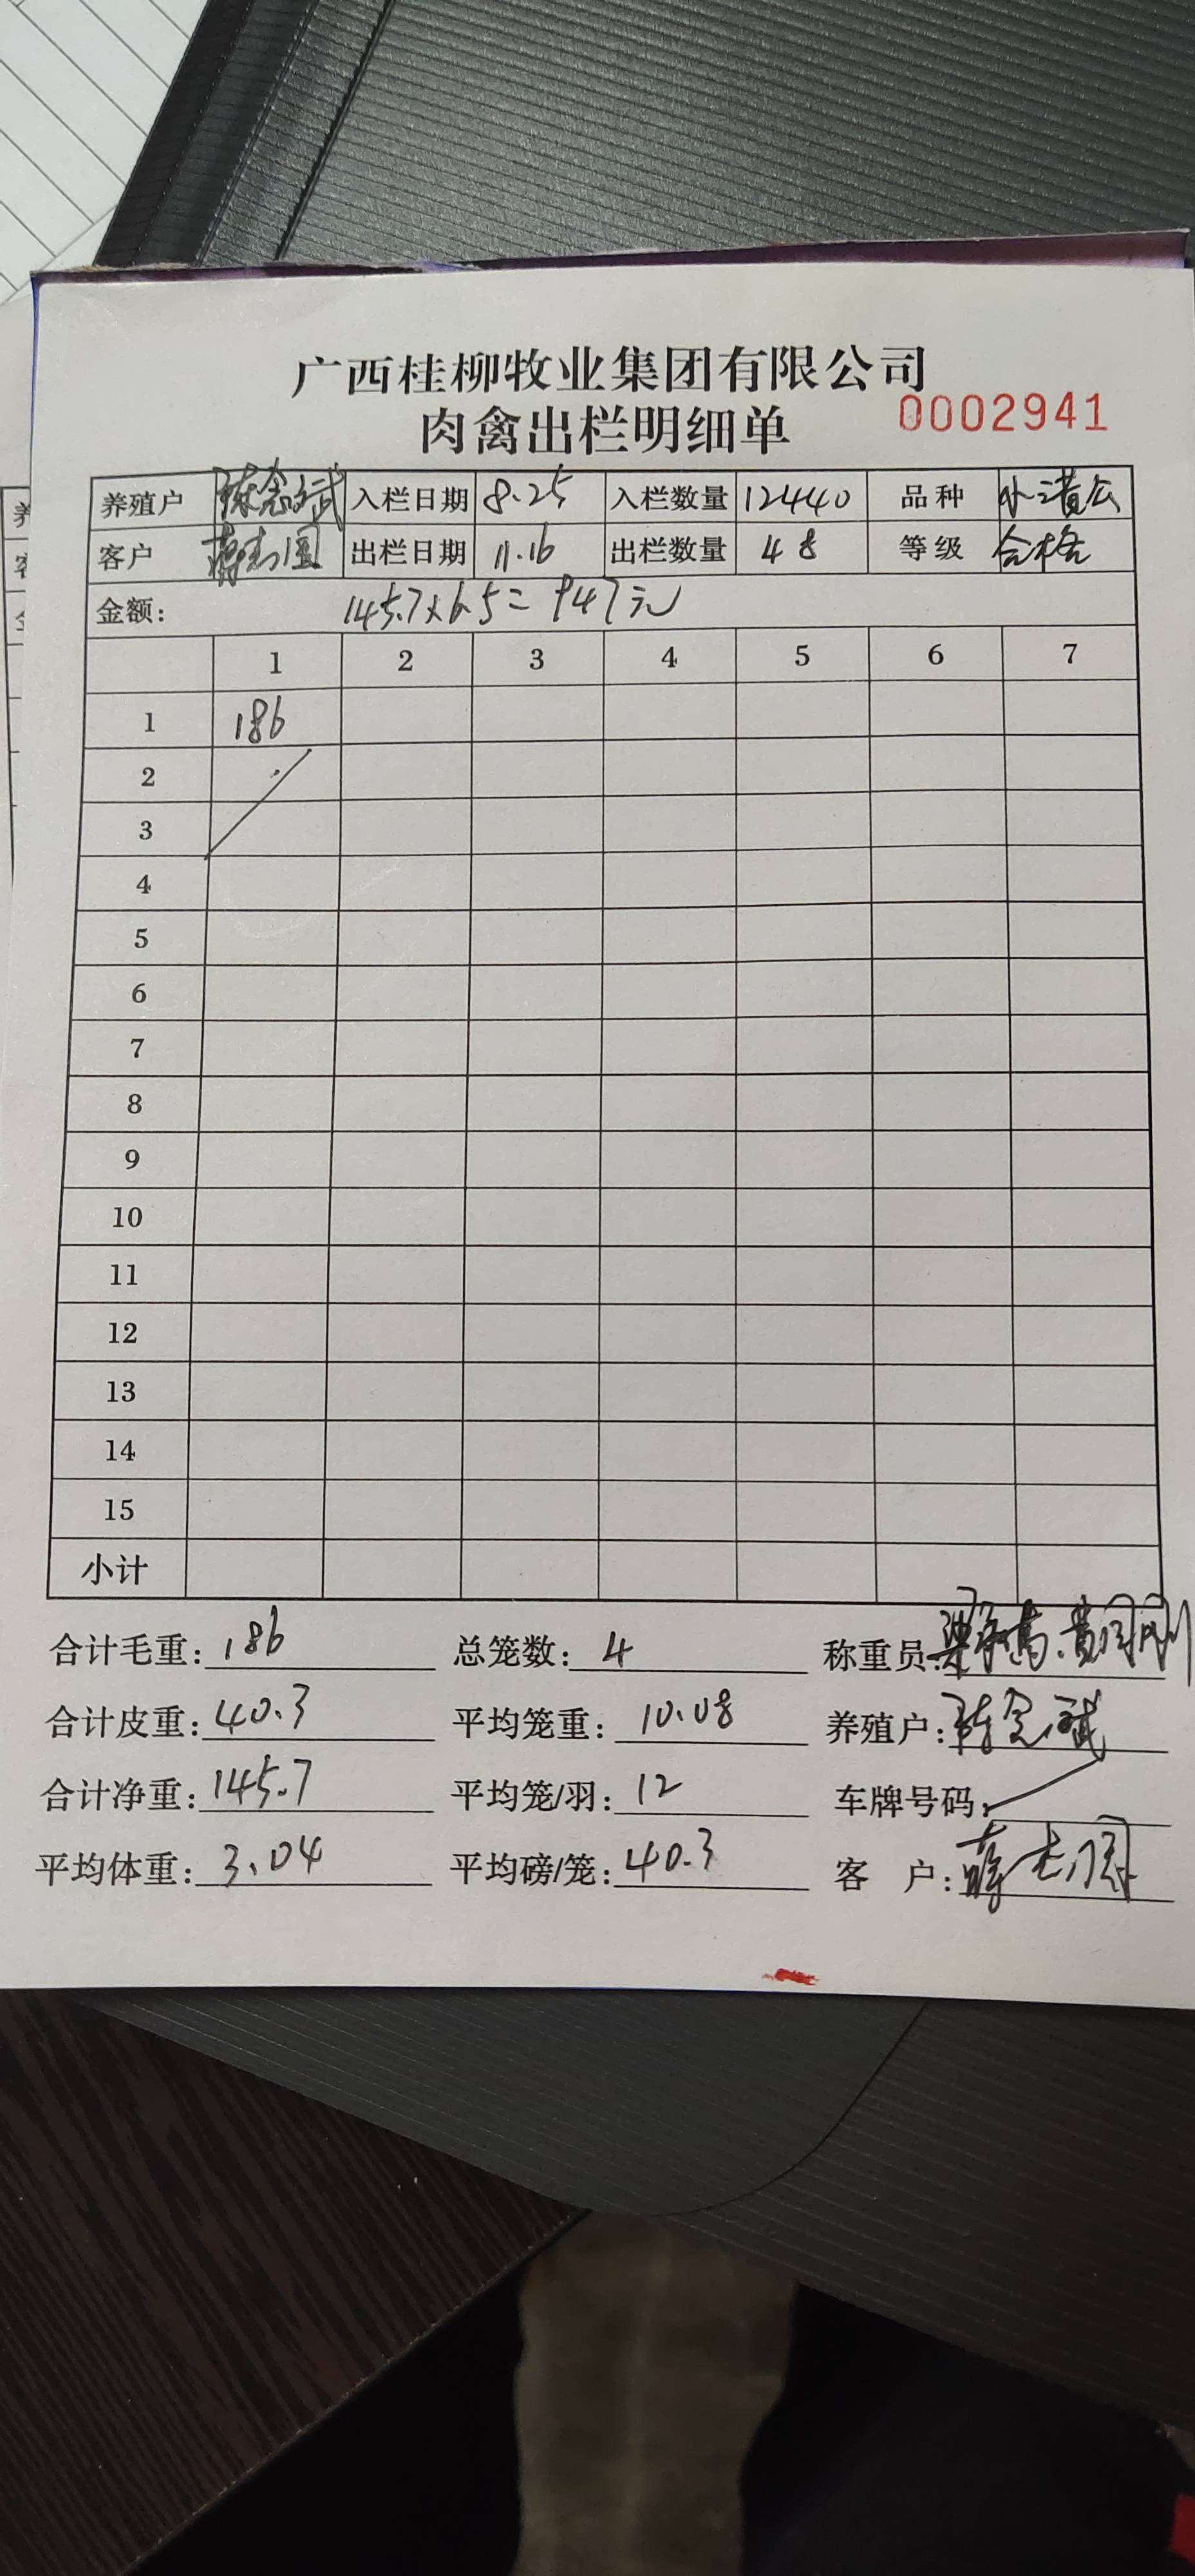 广西桂柳牧业集团有限公司
肉禽出栏明细单 0002941
养殖户 陈念斌 入栏日期 8.25 入栏数量 12440 品种
客户 出栏日期 11.16 出栏数量 48 等级 合格
金额： 145.7x6.5=947元
1 2 3 4 5 6 7
1 186
2
3
4
5
6
7
8
9
10
11
12
13
14
15
小计
合计毛重：186 总笼数：4 称重员：
合计皮重：40.3 平均笼重：10.08 养殖户：陈念斌
合计净重：145.7 平均笼/羽：12 车牌号码：
平均体重：3.04 平均磅/笼：40.3 客户：